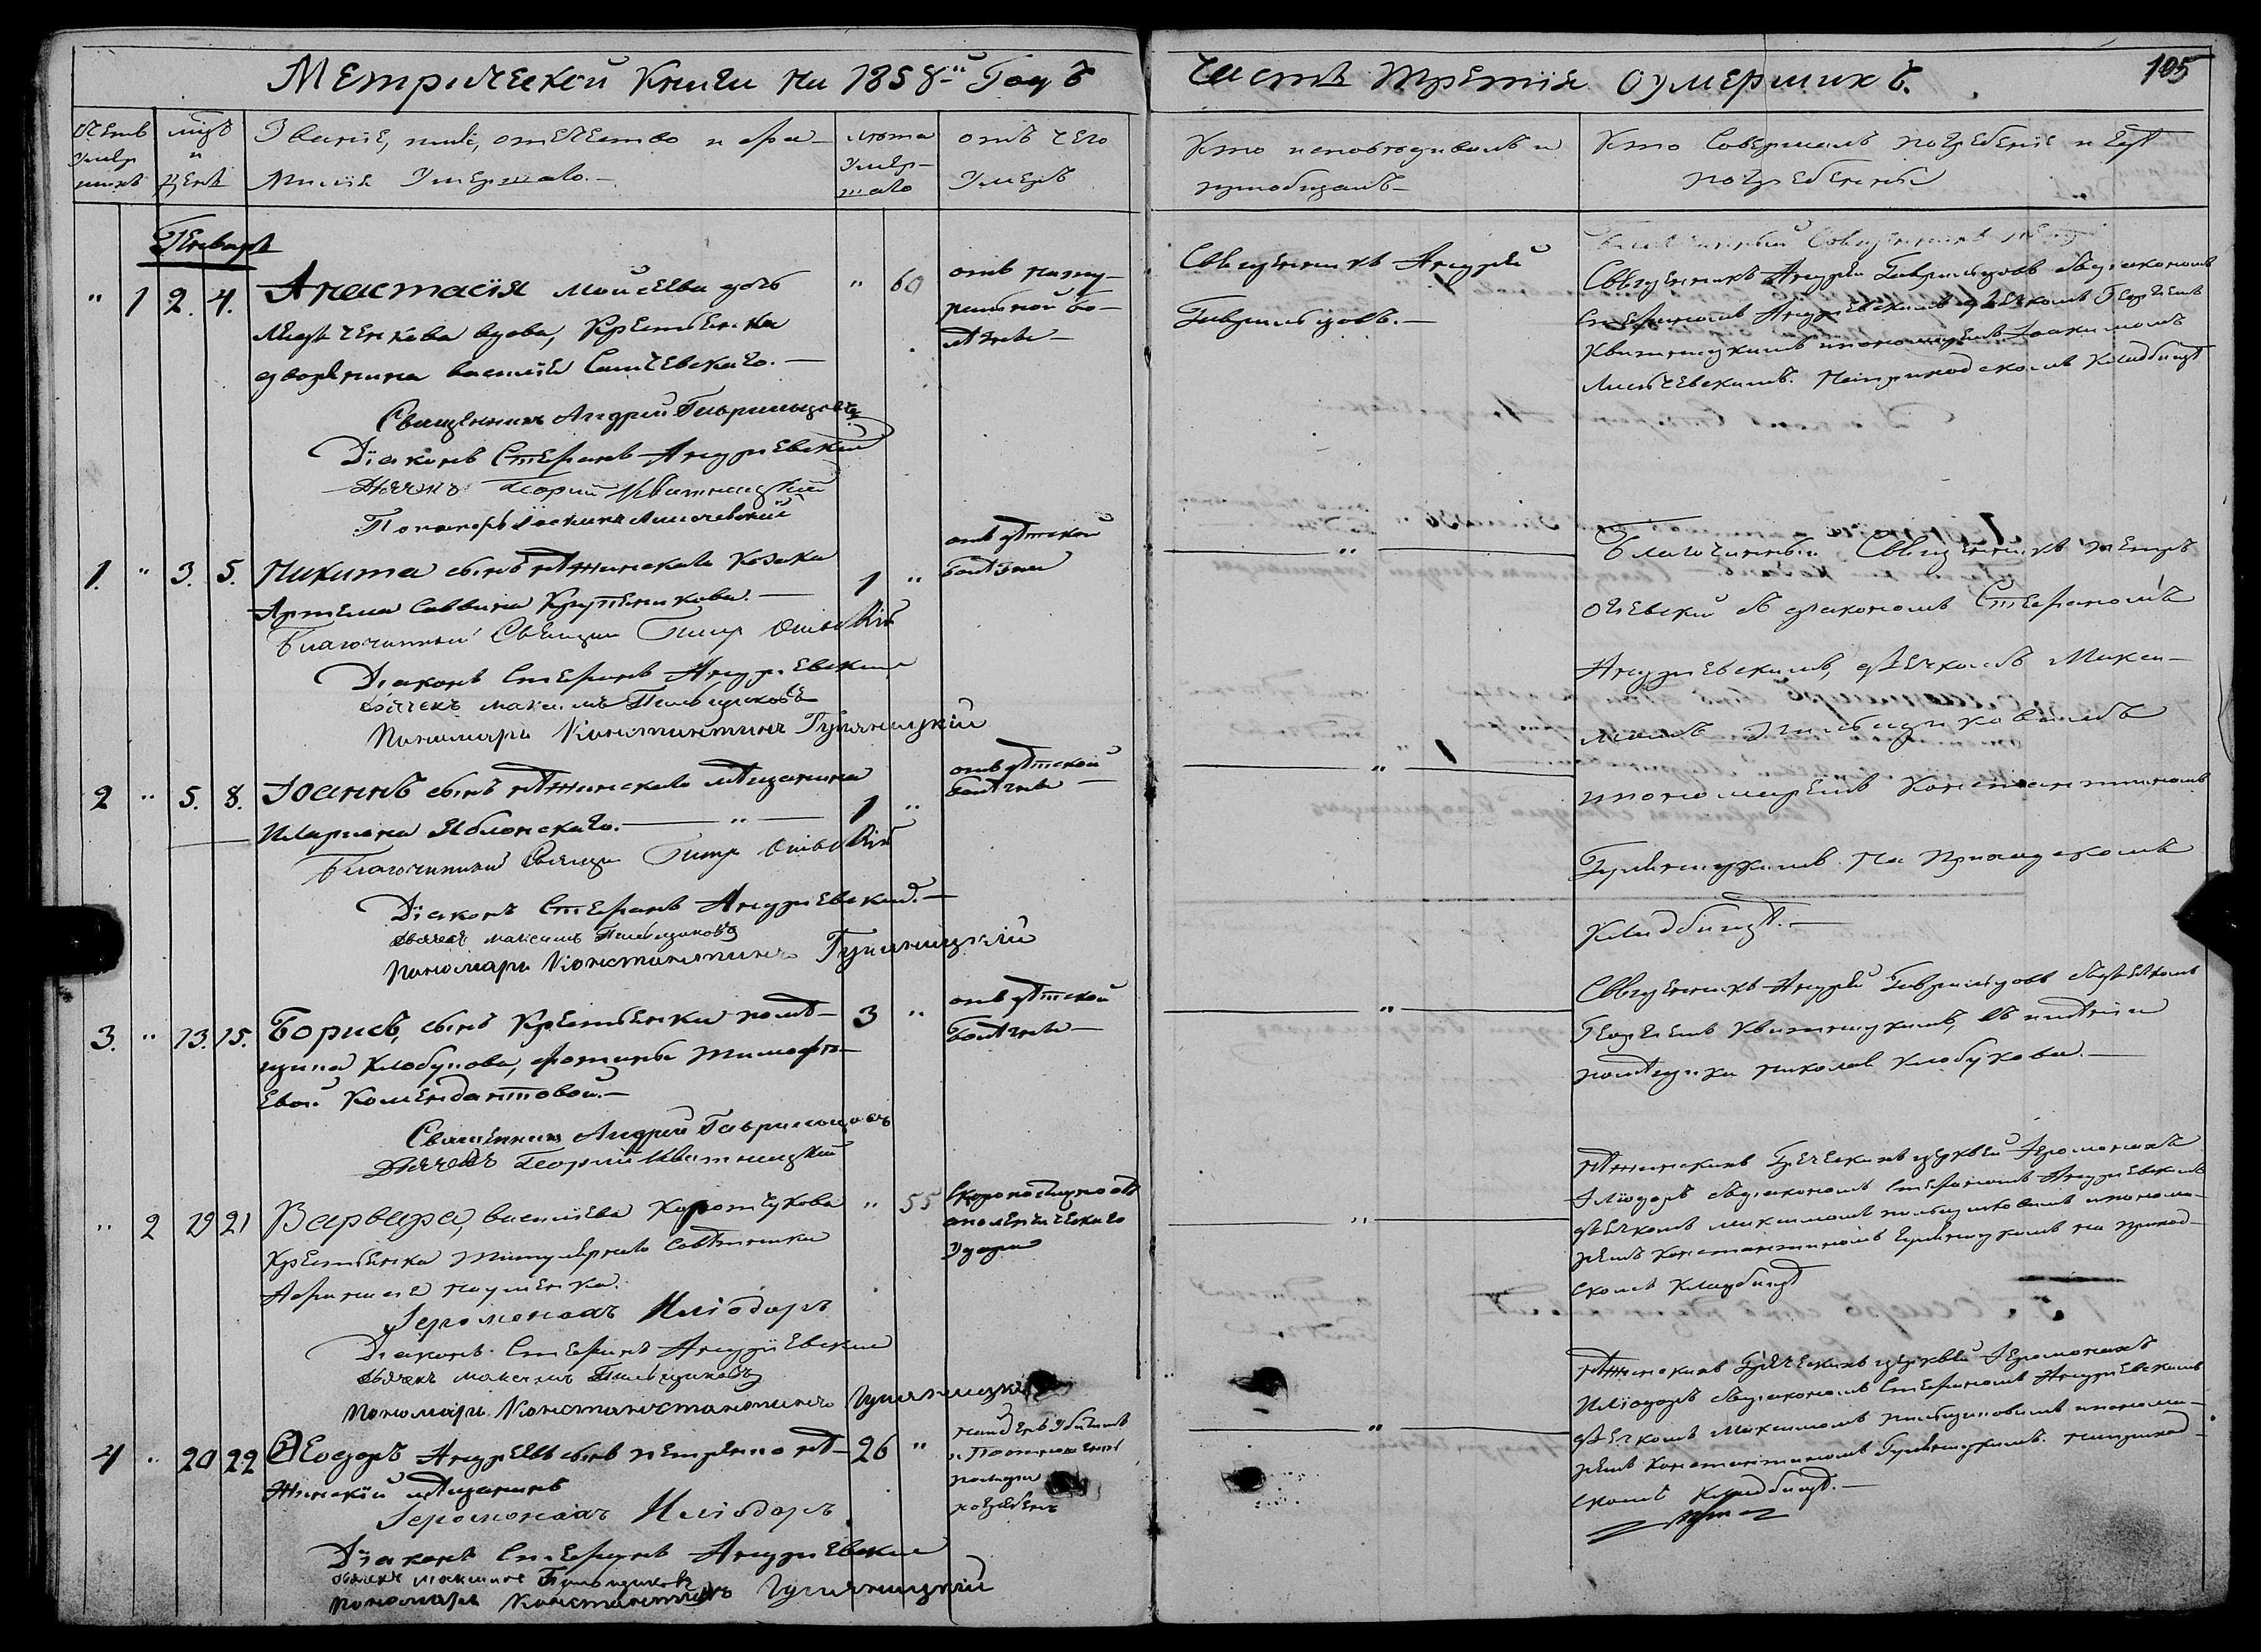 Метрической Книги на 1858-й Годъ
Часть третія О умершихъ.
105
Счетъ умер шихъ
мѣсяцъ и день
Званіе, имя, отчество и фа-
милія Умершаго.-
лѣта Умер-шаго
отъ чего Умеръ
Кто исповѣдывалъ и
пріобщалъ-
Кто Совершалъ погребеніе и гдѣ
погребенны
Генварь
" 1 2. 4. Анастасія Мойсеева дочь
вдова, Крестьянка
дворянина Василія
Священникъ Андрей Гаврильцовъ
Діаконъ Стефанъ Андріевскій
Дьячекъ Георгій Квитницкій
Пономарь Іоакимъ Лисичевскій
" 60
отъ нату-
ральной бо-
лѣзни-
Священникъ Андрей
Гаврильцовъ.-
Священникъ Андрей Гаврильцовъ съ діакономъ
Стефаномъ Андріевскимъ дьячкомъ Георгіемъ
Квитницкимъ и пономаремъ Іоакимомъ
Лисичевскимъ. На приходскомъ Кладбищѣ
1. " 3. 5. Никита сынъ нѣжинскаго козака
Артема Саввина Крупеникова.-
Благочинный Священ Петр
Діаконъ Стефанъ Андріевскій
Дьячекъ Максимъ Пильщиковъ
Пономарь Константинъ Гуляницкій
1 "
отъ дѣтской
болѣзни
"
Благочинный Священникъ Петръ
съ діакономъ Стефаномъ
Андріевскимъ, дьячкомъ Макси-
момъ Пильщиковымъ
и пономаремъ Константиномъ
Гуляницкимъ. На приходскомъ
Кладбищѣ.-
2 " 5. 8. Іоаннъ сынъ нѣжинскаго мѣщанина
Иларіона Яблонскаго. "
Благочинный Священ Петр
Діаконъ Стефанъ Андріевскій.-
Дьячекъ Максимъ Пильщиковъ
Пономарь Константинъ Гуляницкій
1 "
отъ дѣтской
болѣзни-
"
3. " 13. 15. Борисъ, сынъ Крестьянки помѣ-
щика Клобукова, Фотины Тимофѣ-
евой Комендантовой.-
Священникъ Андрей Гаврильцовъ
Дьячекъ Георгій Квитницкій
3 "
отъ дѣтской
болѣзни-
"
Священникъ Андрей Гаврильцовъ съ дьячкомъ
Георгіемъ Квитницкимъ, въ имѣніи
помѣщика Николая Клобукова.-
" 2 19 21 Варвара, Василіева Коротчукова
Крестьянка титулярнаго Совѣтника
Іеромонахъ Иліодоръ
Діаконъ Стефанъ Андріевскій
Дьячекъ Максимъ Пильщиковъ
Пономарь Константинъ Гуляницкій
" 55
Скоропостижно отъ
апоплексическаго
удара
"
Нѣжинскихъ Греческихъ церквей Іеромонахъ
Иліодоръ съ діакономъ Стефаномъ Андріевскимъ
дьячкомъ Максимомъ Пильщиковымъ и понома-
ремъ Константиномъ Гуляницкимъ на приход-
скомъ Кладбищѣ
4 " 20 22 Ѳеодоръ Андреевъ сынъ Петренко нѣ-
жинскій мѣщанинъ
Іеромонахъ Иліодоръ
Діаконъ Стефанъ Андріевскій
Дьячекъ Максимъ Пильщиковъ
Пономарь Константинъ Гуляницкій
26 "
"
Нѣжинскихъ Греческихъ церквей Іеромонахъ
Иліодоръ съ діакономъ Стефаномъ Андріевскимъ
дьячкомъ Максимомъ Пильщиковымъ и понома-
ремъ Константиномъ Гуляницкимъ. на приход-
скомъ Кладбищѣ.-